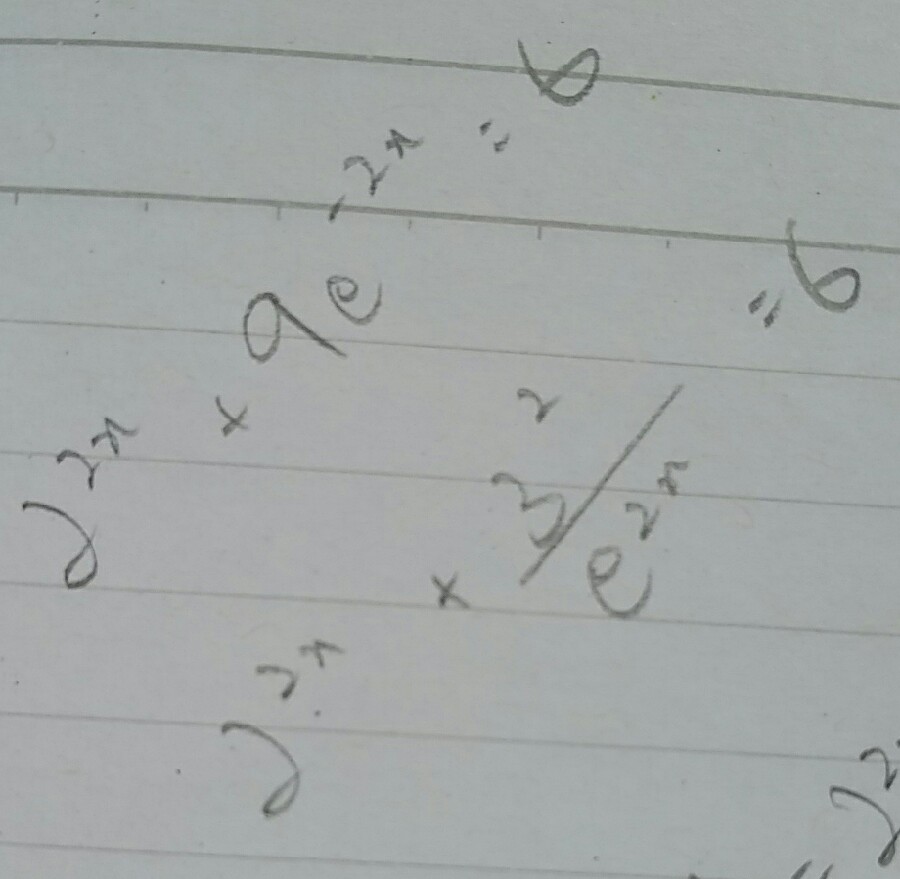 2^{2x} × 9e^{-2x} = 6
2^{2x} × 3^2/e^{2x} = 6